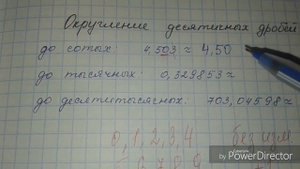 Округление десятичных дробей
до сотых: 4,503 ≈ 4,50
до тысячных: 0,329853 ≈
до десятитысячных: 703,04598 ≈
0, 1, 2, 3, 4 без изм
5 6 7 8 9
Made with KINEMASTER
PowerDirector